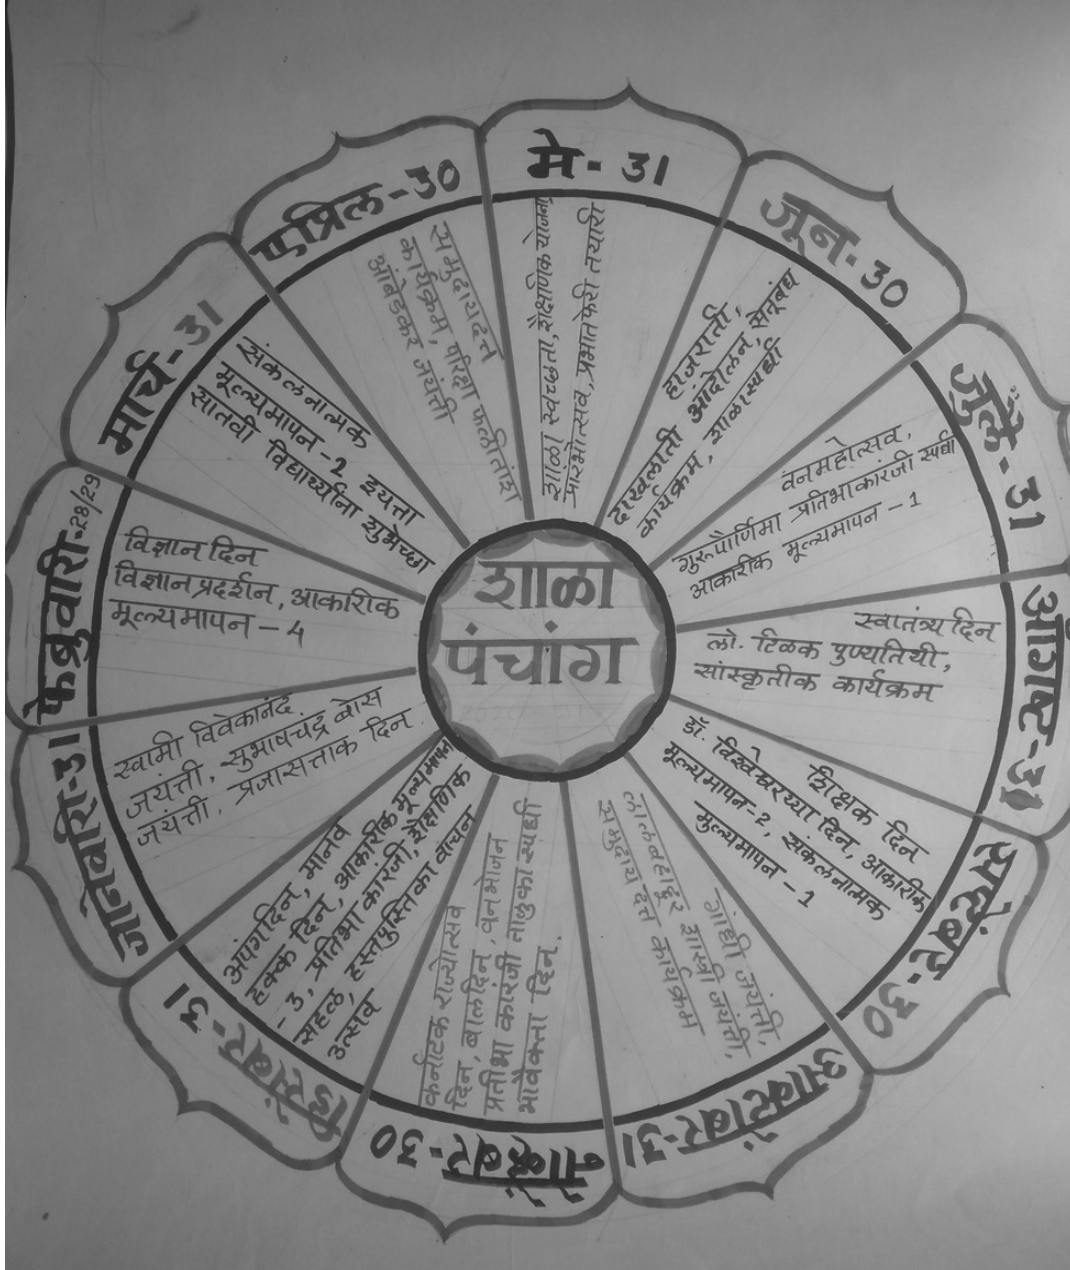 शाळा
पंचांग
मे - 31
शाळा स्वच्छता, शैक्षणिक योजना
प्रारंभोत्सव, प्रभात फेरी तयारी
जून - 30
हाजराती,
दाखलाती आंदोलन, सेतूबंध
कार्यक्रम, शाळा स्पर्धा
जुलै - 31
वनमहोत्सव,
गुरुपौर्णिमा प्रतिभाकारंजी स्पर्धा
आकारीक मूल्यमापन - 1
ऑगष्ट - 31
स्वातंत्र्य दिन
लो. टिळक पुण्यतिथी,
सांस्कृतीक कार्यक्रम
सप्टेंबर - 30
शिक्षक दिन
डॉ. विश्वेश्वरय्या दिन, आकारीक
मूल्यमापन-2, संकलनात्मक
मुल्यमापन - 1
आक्टोंबर - 31
गांधी जयंती,
लालबहादूर शास्त्री जयंती,
समुदाय दत्त कार्यक्रम
नोव्हेंबर - 30
कर्नाटक राज्योत्सव
दिन, बालदिन, वनभोजन
प्रतीभा कारंजी तालुका स्पर्धा
भावैक्ता दिन.
डिसेंबर - 31
अपंग दिन, मानव
हक्क दिन, आकारिक मूल्यमापन
- 3, प्रतिभा कारंजी, शैक्षणिक
सहल, हस्तपुस्तिका वाचन
उत्सव
जानेवारि - 31
स्वामी विवेकानंद
जयंत्ती, सुभाषचंद्र बोस
जयंत्ती, प्रजासत्ताक दिन
फेब्रुवारि - 28/29
विज्ञान दिन
विज्ञान प्रदर्शन, आकारिक
मूल्यमापन - 4
मार्च - 31
संकलनात्मक
मूल्यमापन - 2 इयत्ता
सातवी विद्यार्थ्यांना शुभेच्छा
एप्रिल - 30
समुदायदत्त
कार्यक्रम, परिक्षा फलीतांश
आंबेडकर जयंती